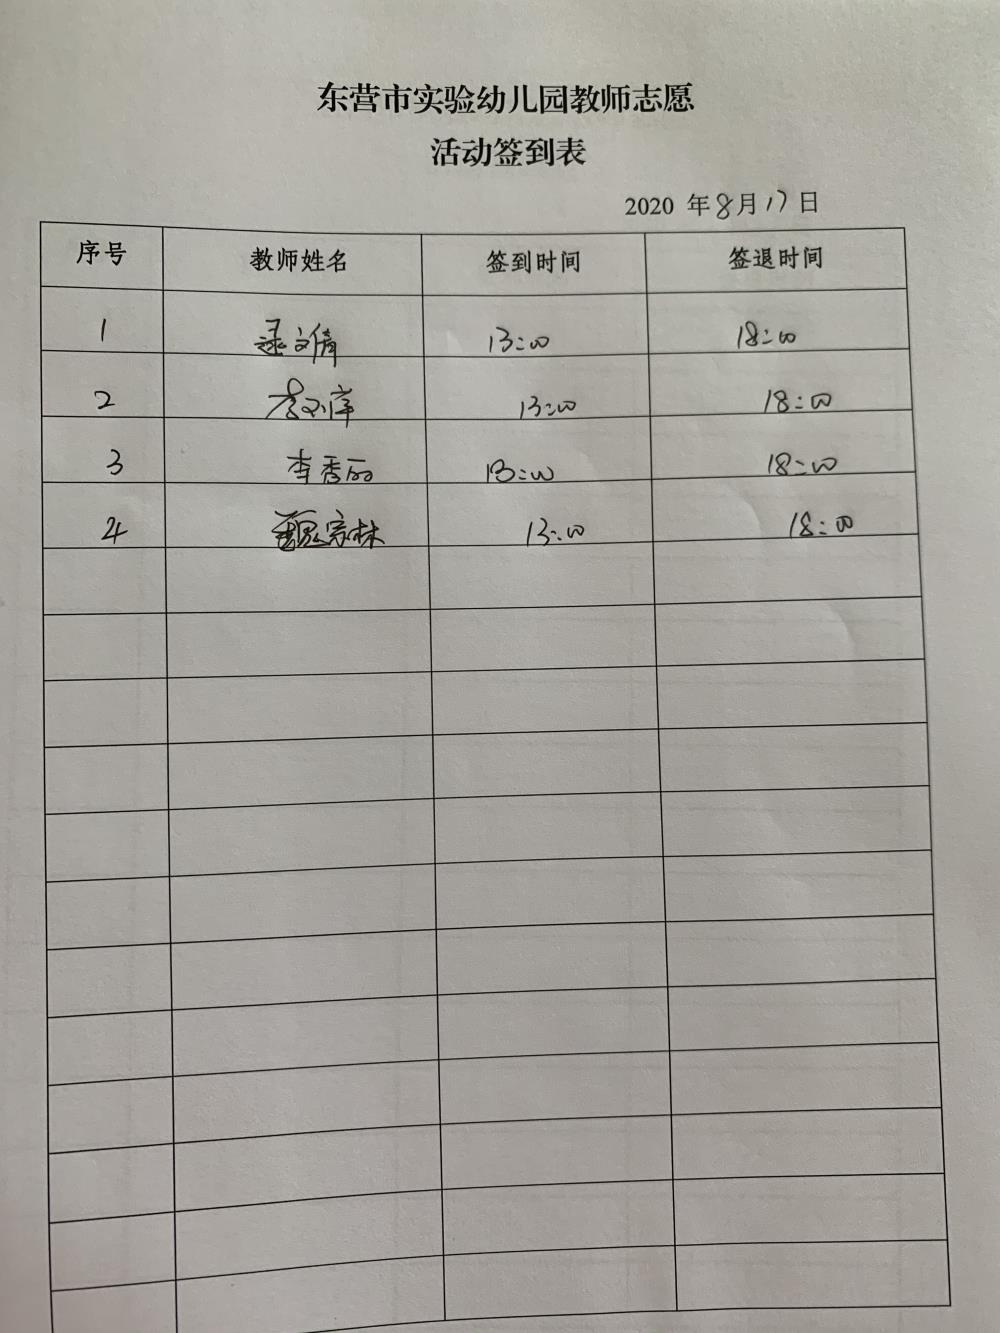 东营市实验幼儿园教师志愿
活动签到表
2020 年8月17日
序号 教师姓名 签到时间 签退时间
1 逯文倩 13:00 18:00
2 13:00 18:00
3 李秀丽 13:00 18:00
4 魏宗林 13:00 18:00